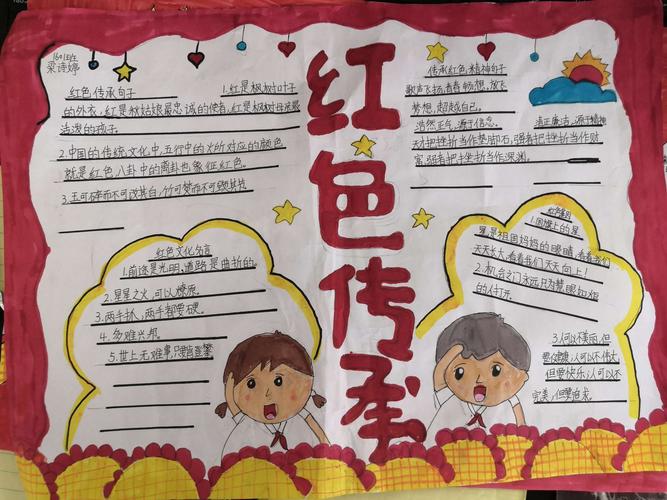 梁诗婷
红色传承
红色,传承句子
1.红是枫树对叶子
的外衣,红是秋姑娘最忠诚的使者,红是枫树母亲最
活泼的孩子。
2.中国的传统文化中,五行中的火所对应的颜色
就是红色,八卦中的离卦也象征红色。
3.玉可碎而不可改其白,竹可焚而不可毁其节
传承红色,精神句子
歌声飞扬,青春畅想,放飞
梦想,超越自己。
浩然正气,源于信念。
清正廉洁,源于精神
天才把挫折当作垫脚石,强者把挫折当作财
富,弱者把挫折当作深渊。
红色文化名言
1.前途是光明,道路是曲折的。
2.星星之火,可以燎原
3.两手抓,两手都要硬。
4.多难兴邦。
5.世上无难事,只要肯登攀
1.国旗上的星
星是祖国妈妈的眼睛,看着我们
天天长大,看着我们天天向上!
2.机会之门永远只为慧眼如炬
的人打开
3.人可以不美丽,但
要健康,人可以不伟大,
但要快乐,人可以不
完美,但要追求。